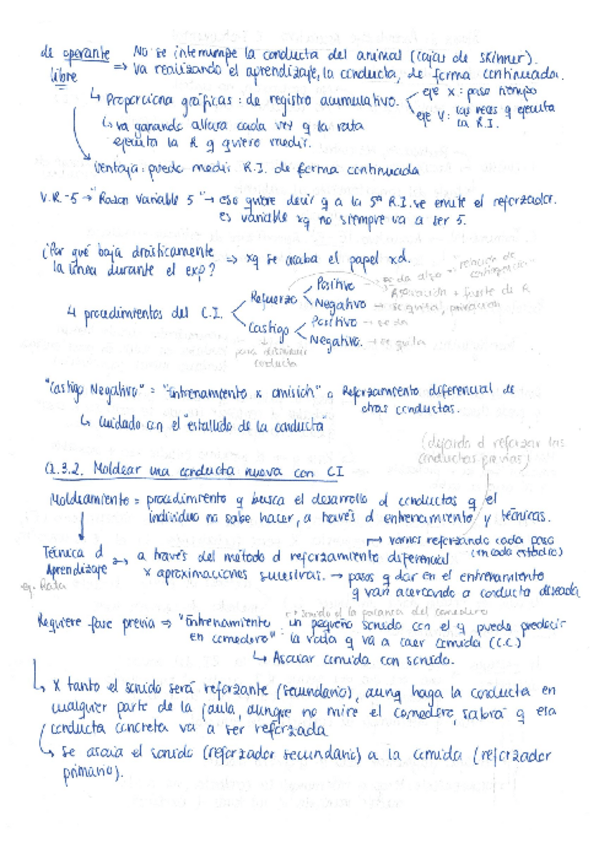 de operante No se interrumpe la conducta del animal (cajas de skinner).
libre => va realizando el aprendizaje, la conducta, de forma continuada.
↳ Proporciona gráficas: de registro acumulativo. eje X: paso tiempo
eje Y: las veces q ejecuta la R.I.
↳ va ganando altura cada vez q la rata
ejecuta la R q quiero medir.
Ventaja: puedo medir R.I. de forma continuada
V.R.-5 → "Razon Variable 5" → eso quiere decir q a la 5ª R.I. se emite el reforzador.
es variable xq no siempre va a ser 5.
¿Por qué baja drásticamente
la línea durante el exp? => xq se acaba el papel xd.
4 procedimientos del C.I.
Refuerzo
Positivo → se da algo → relación de contingencia
Asociación + fuerte d R
Negativo → se quita, privación
Castigo
Positivo → se da
Negativo. → se quita
para disminuir
conducta
"Castigo Negativo" = "Entrenamiento x omisión" o Reforzamiento diferencial de
otras conductas.
↳ cuidado con el "estallido de la conducta"
(dejando d reforzar las
conductas previas)
2.3.2. Moldear una conducta nueva con CI
Moldeamiento = procedimiento q busca el desarrollo d conductas q el
individuo no sabe hacer, a través d entrenamiento y técnicas.
↦ vamos reforzando cada paso
Técnica d
Aprendizaje → a través del método d reforzamiento diferencial (en cada estadio)
eg. Rata
x aproximaciones sucesivas. → pasos q dar en el entrenamiento
q van acercando a conducta deseada
r* sonido d la palanca del comedero
Requiere fase previa => "Entrenamiento un pequeño sonido con el q puede predecir
en comedero": la rata q va a caer comida (C.C.)
↳ Asociar comida con sonido.
↳ X tanto el sonido será reforzante (secundario), aunq haga la conducta en
cualquier parte de la jaula, aunque no mire el comedero, sabrá q esa
conducta concreta va a ser reforzada
↳ Se asocia el sonido (reforzador secundario) a la comida (reforzador
primario).